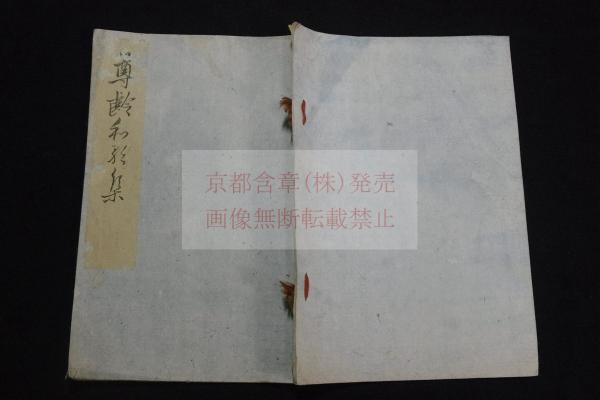 尊齢和歌集
京都含章(株)発売
画像無断転載禁止